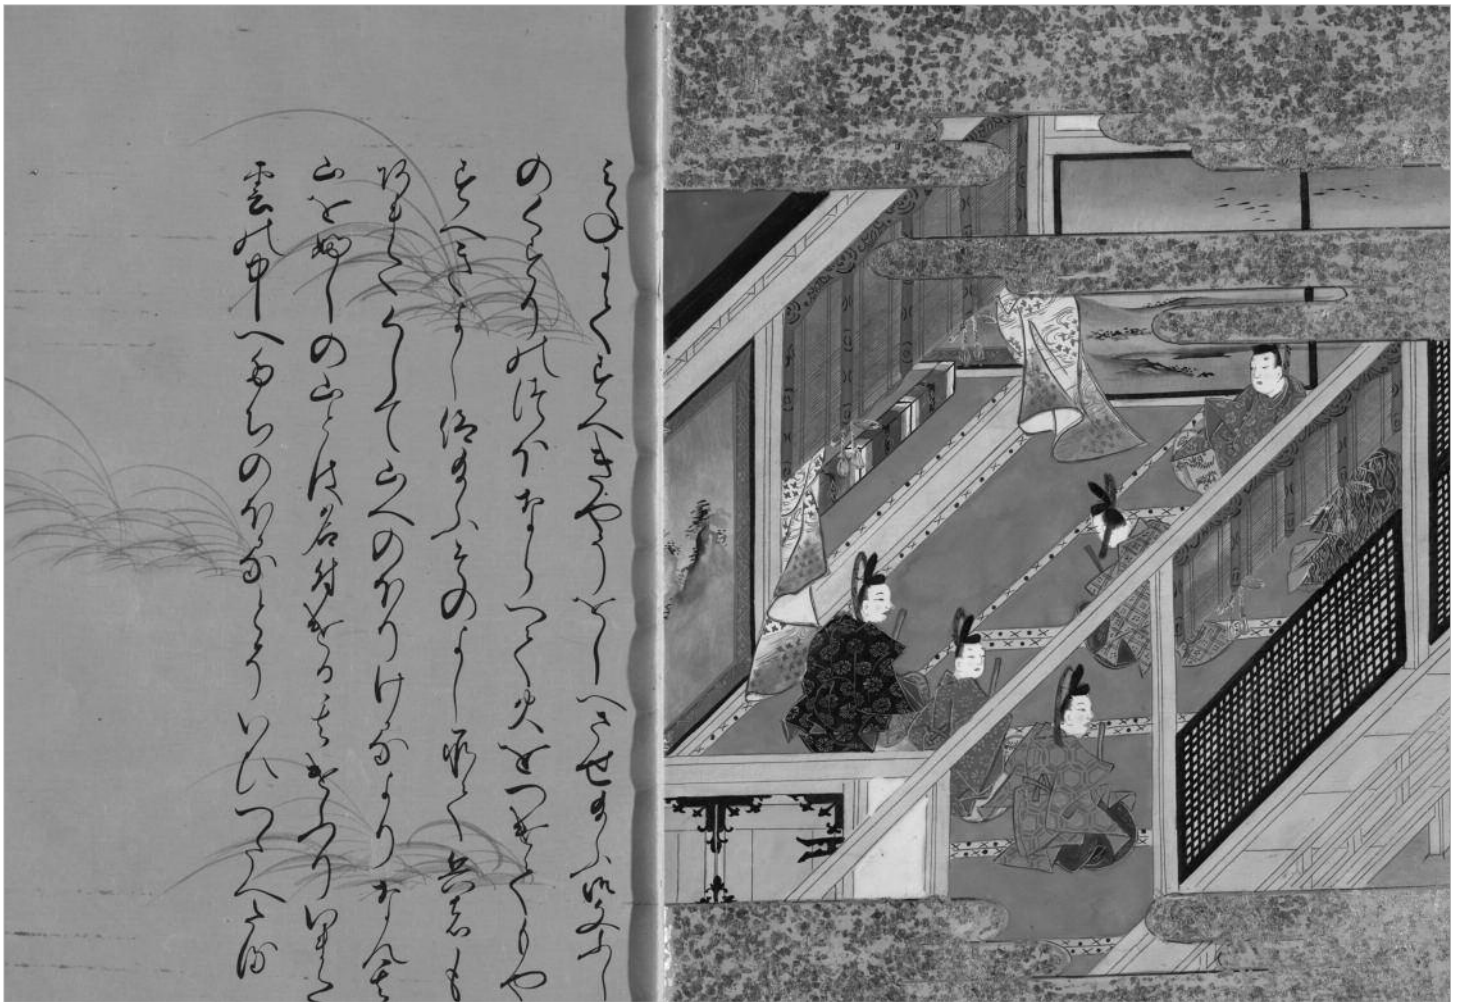 みねにてすへきやうをしへさせ給ふ御文ふし
のくすりのつほならへて火をつけてもや
すへきよし仰給ふそのよし承て兵者も
あまたくして山へのほりけるよりなん其
山をふしの山とは名付ける其けふりいまた
雲の中へたちのほるとそいひつたへたる